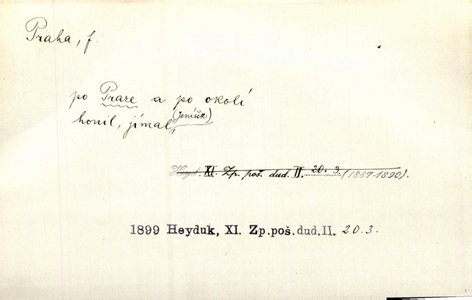 Praha, f.
po Praze a po okolí
(Jeníka)
honil, jímal,
Heyd. XI. Zp. poš. dud. II. 20. 3. (1889-1890).
1899 Heyduk, XI. Zp.poš.dud.II. 20.3.